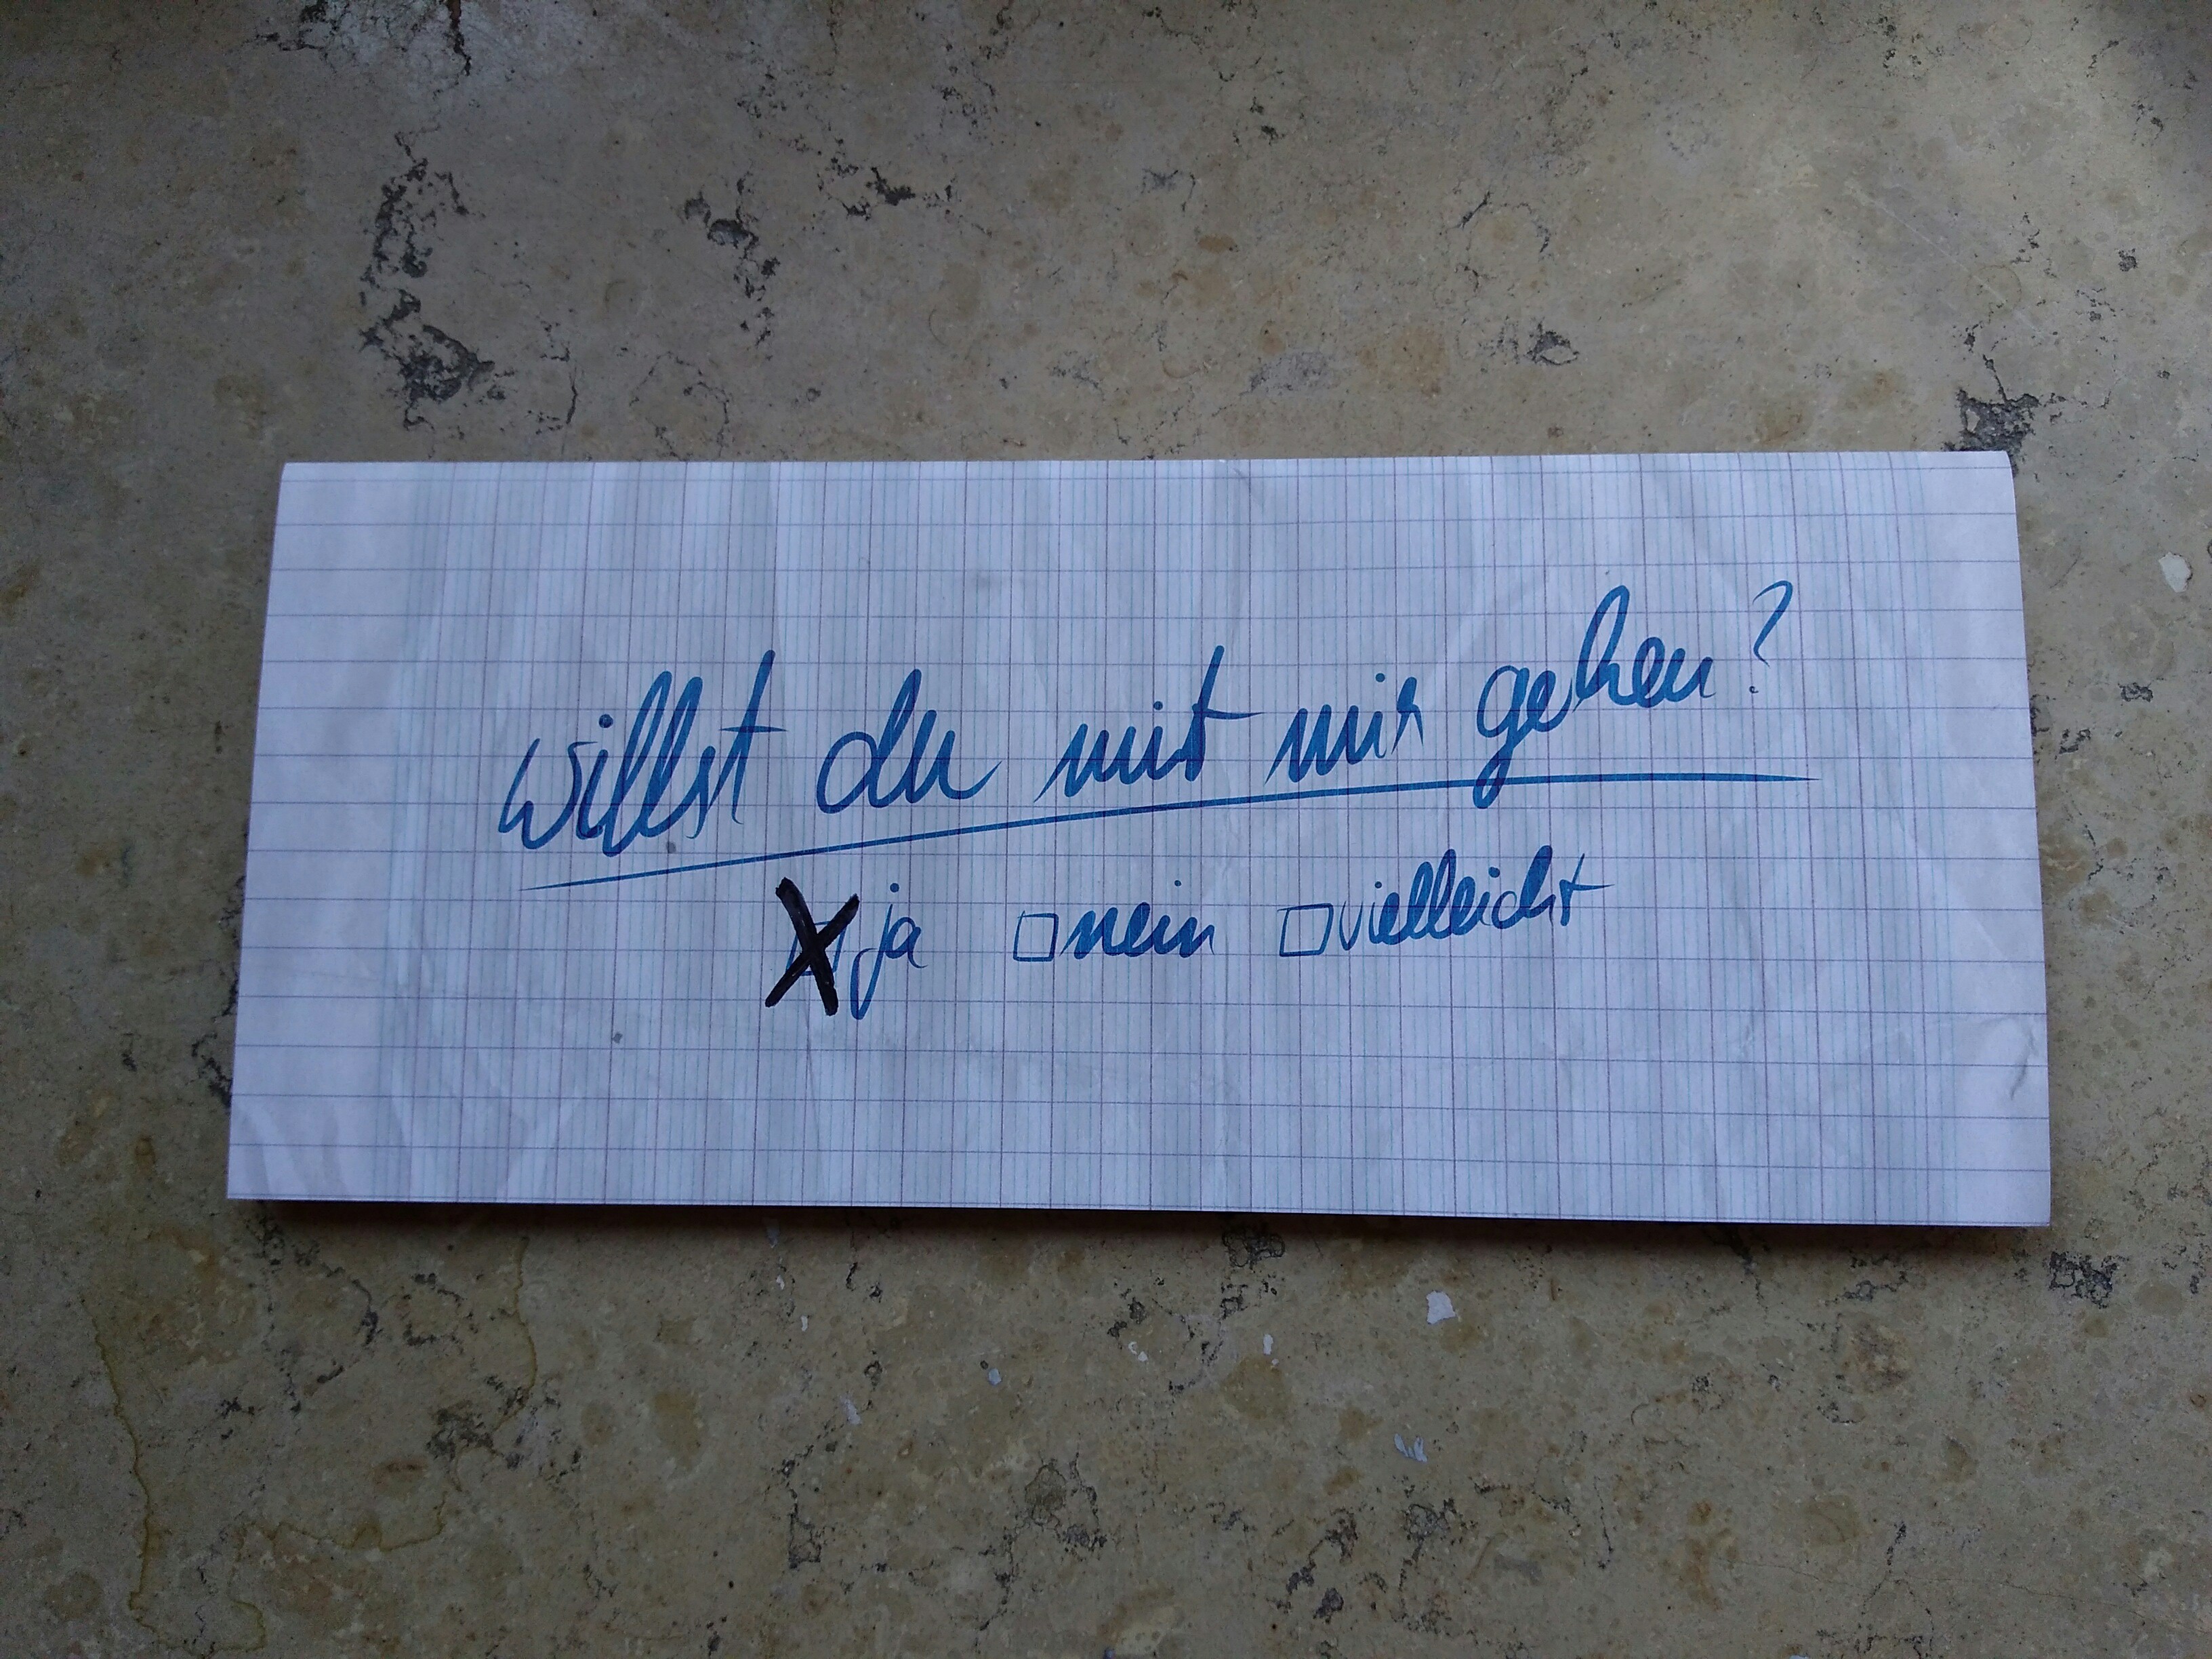 willst du mit mir gehen?
☒ ja ☐ nein ☐ vielleicht